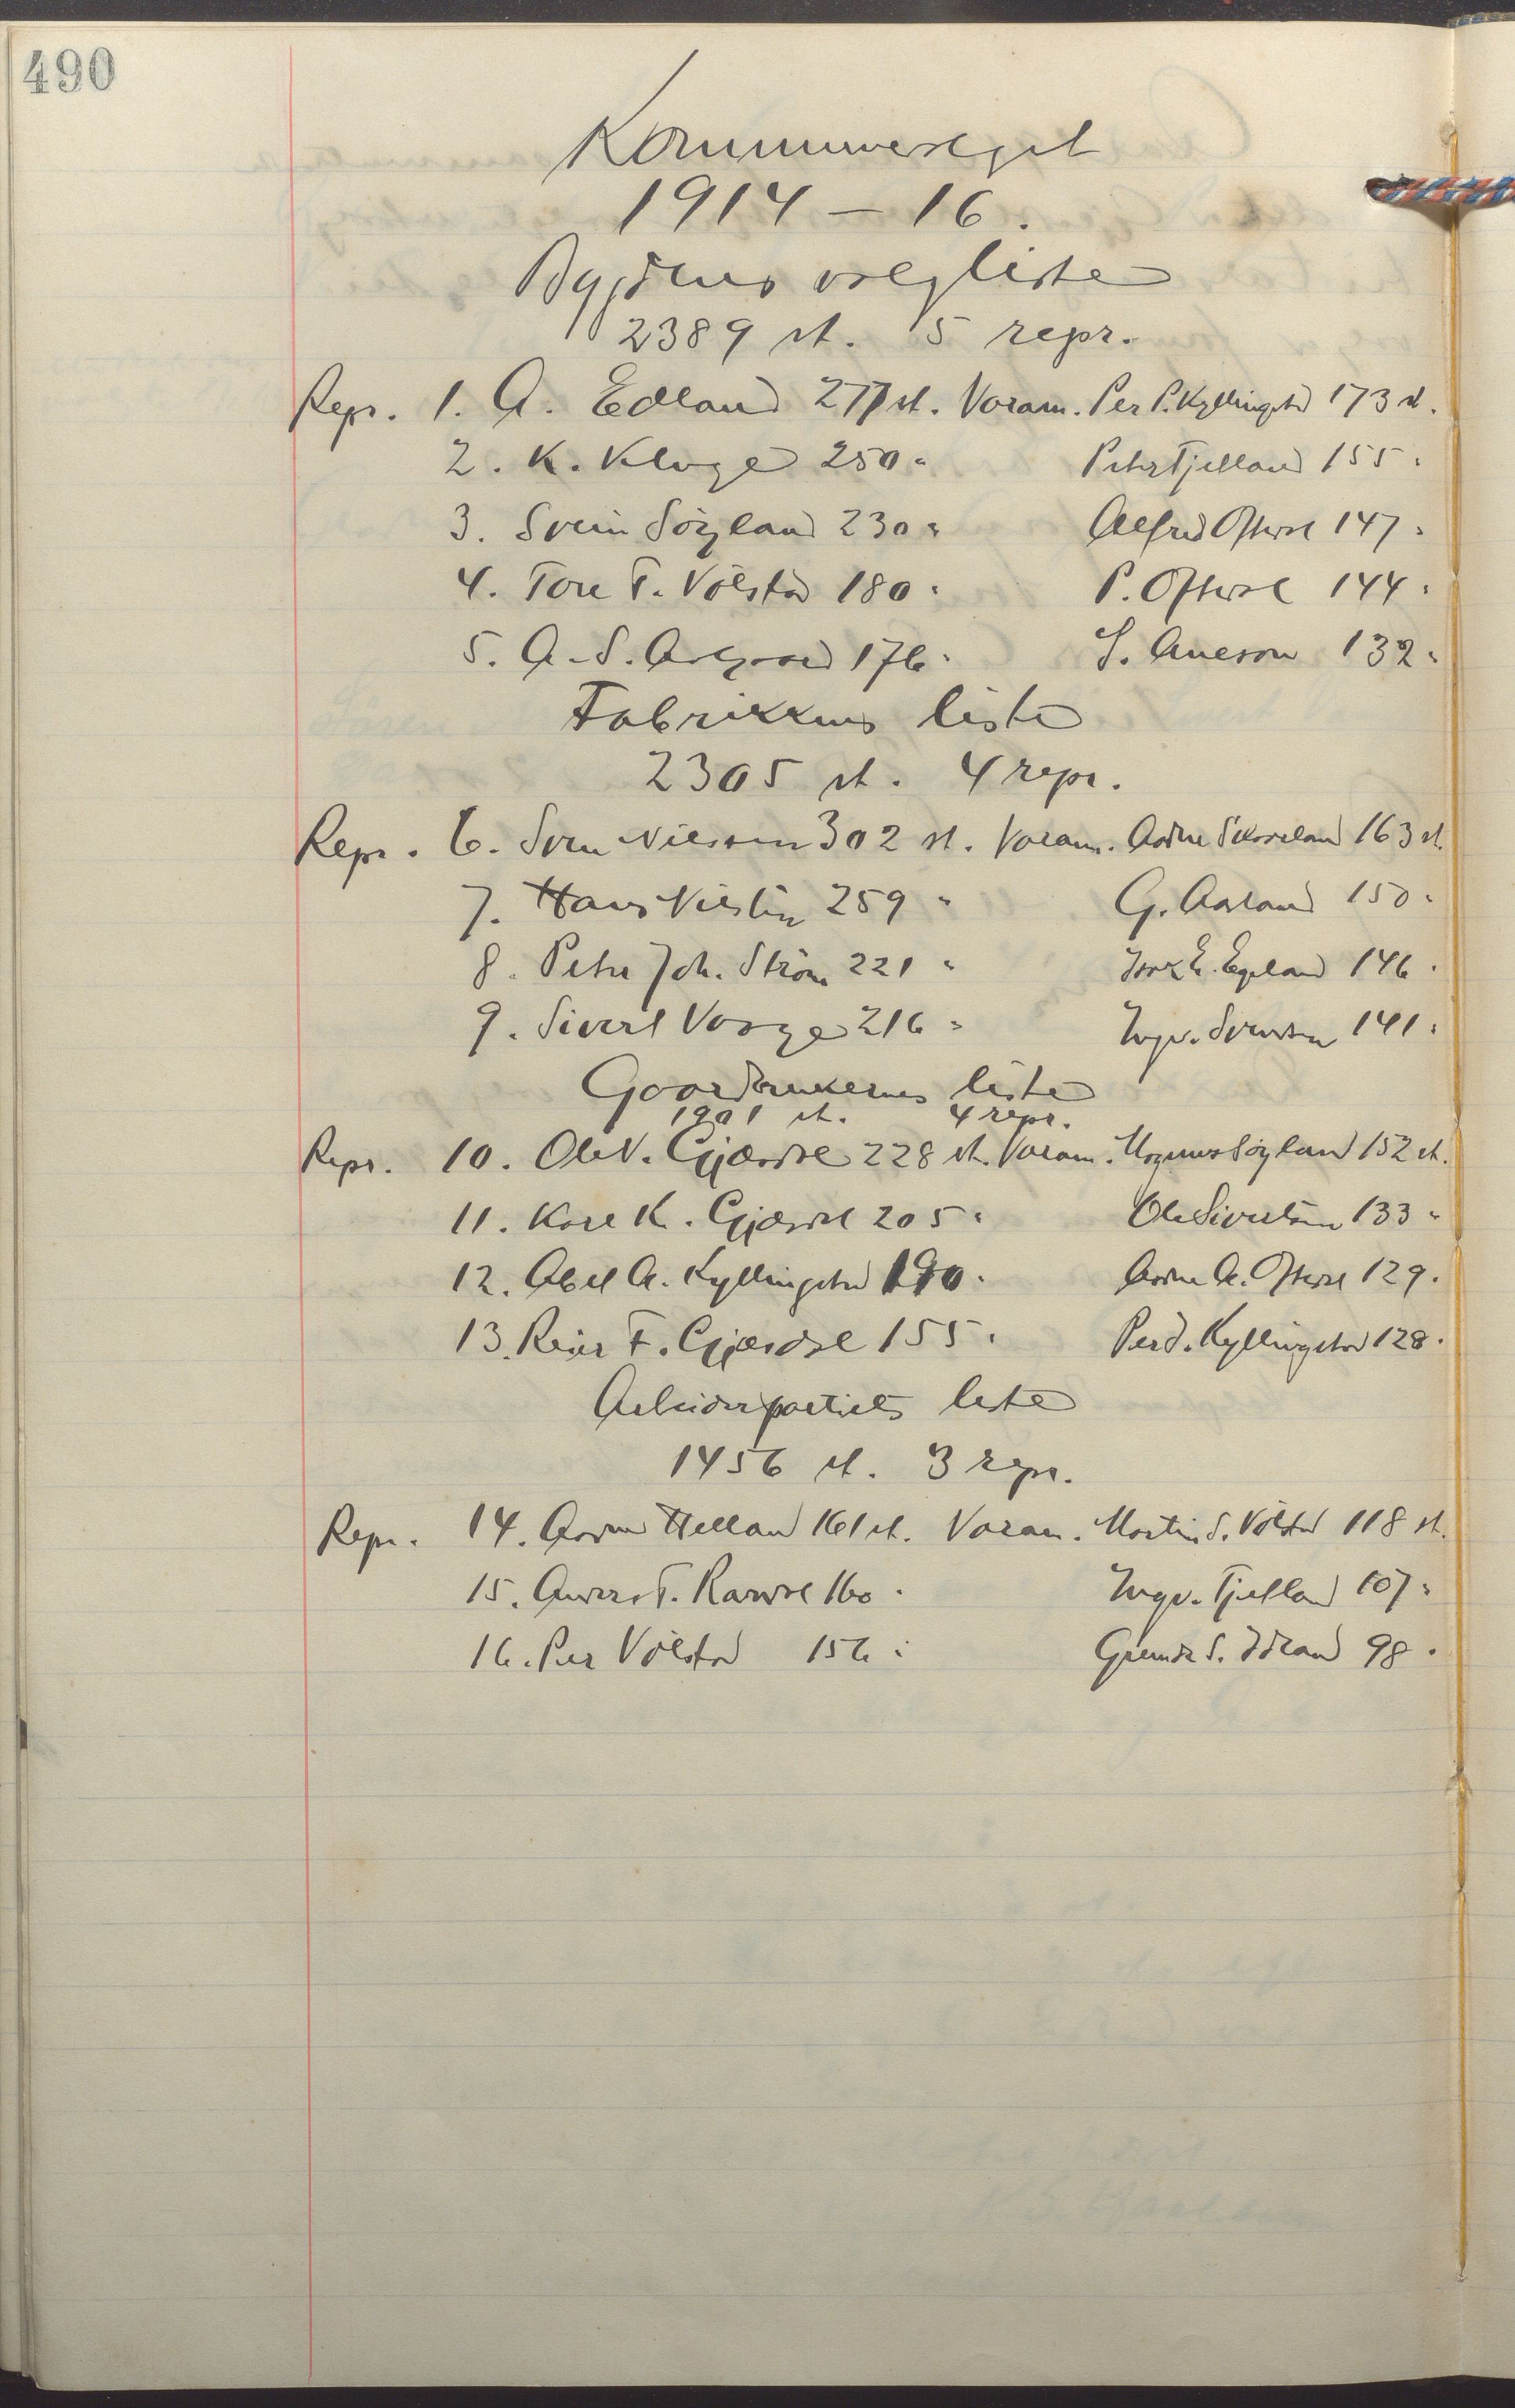 490
Kommunevalget
1914 - 16.
Bygdens valgliste
2389 st. 5 repr.
Repr. 1. A. Edland 277 st. Varam. Per P. Kyllingstad 173 st.
2. K. Kluge 250 " Peter Fjelland 155 "
3. Svein Søyland 230 " Alfred Oftedal 147 "
4. Tore T. Vølstad 180 " P. Oftedal 144 "
5. A. S. 176 " S. Aneson 132 "
Fabrikkens liste
2305 st. 4 repr.
Repr. 6. Sven Nielsen 302 st. Varam. Adne Skurveland 163 st.
7. Hans 259 " G. Aarland 150 "
8. Peter Joh. Strøm 221 " E. Egeland 146 "
9. Sivert Varge 216 " Ingv. Svendsen 141 "
Gaardbrukernes liste
1901 st. 4 repr.
Repr. 10. Ole V. Gjesdal 228 st. Varam. Magnus Søyland 152 st.
11. Kare K. Gjesdal 205 " Ole Sivertsen 133 "
12. Abel A. Kyllingstad 190 " Adne A. Oftedal 129 "
13. Reier T. Gjesdal 155 " Per J. Kyllingstad 128 "
Arbeiderpartiets liste
1456 st. 3 repr.
Repr. 14. Adne Helland 161 st. Varam. Martin S. Vølstad 118 st.
15. T. Ravndal 160 " Ingv. Fjelland 107 "
16. Per Vølstad 156 " S. 98 "